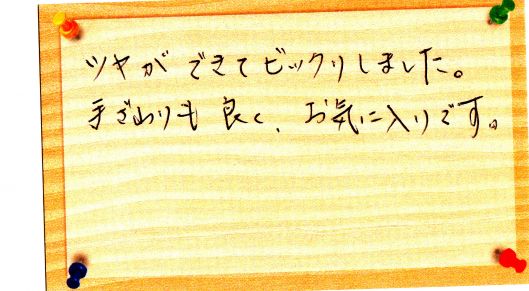 ツヤができてビックリしました。
手ざわりも良く、お気に入りです。